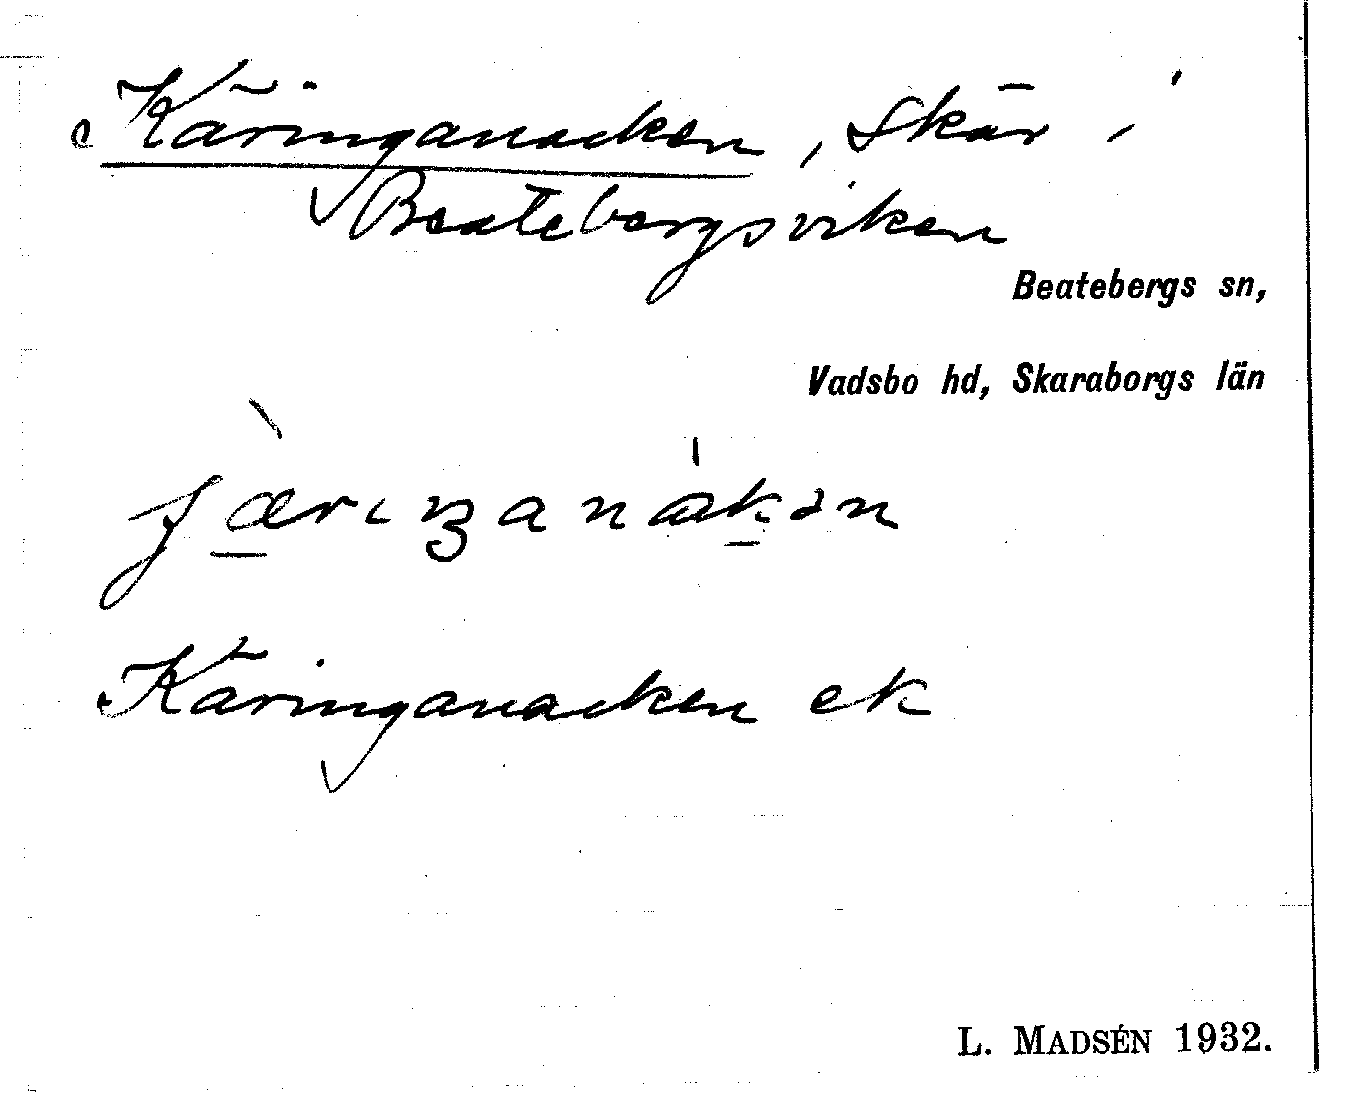 Käringanacken, Skär i
Beatebergsviken
Beatebergs sn,
Vadsbo hd, Skaraborgs län
Käringanacken ek
L. MADSÉN 1932.